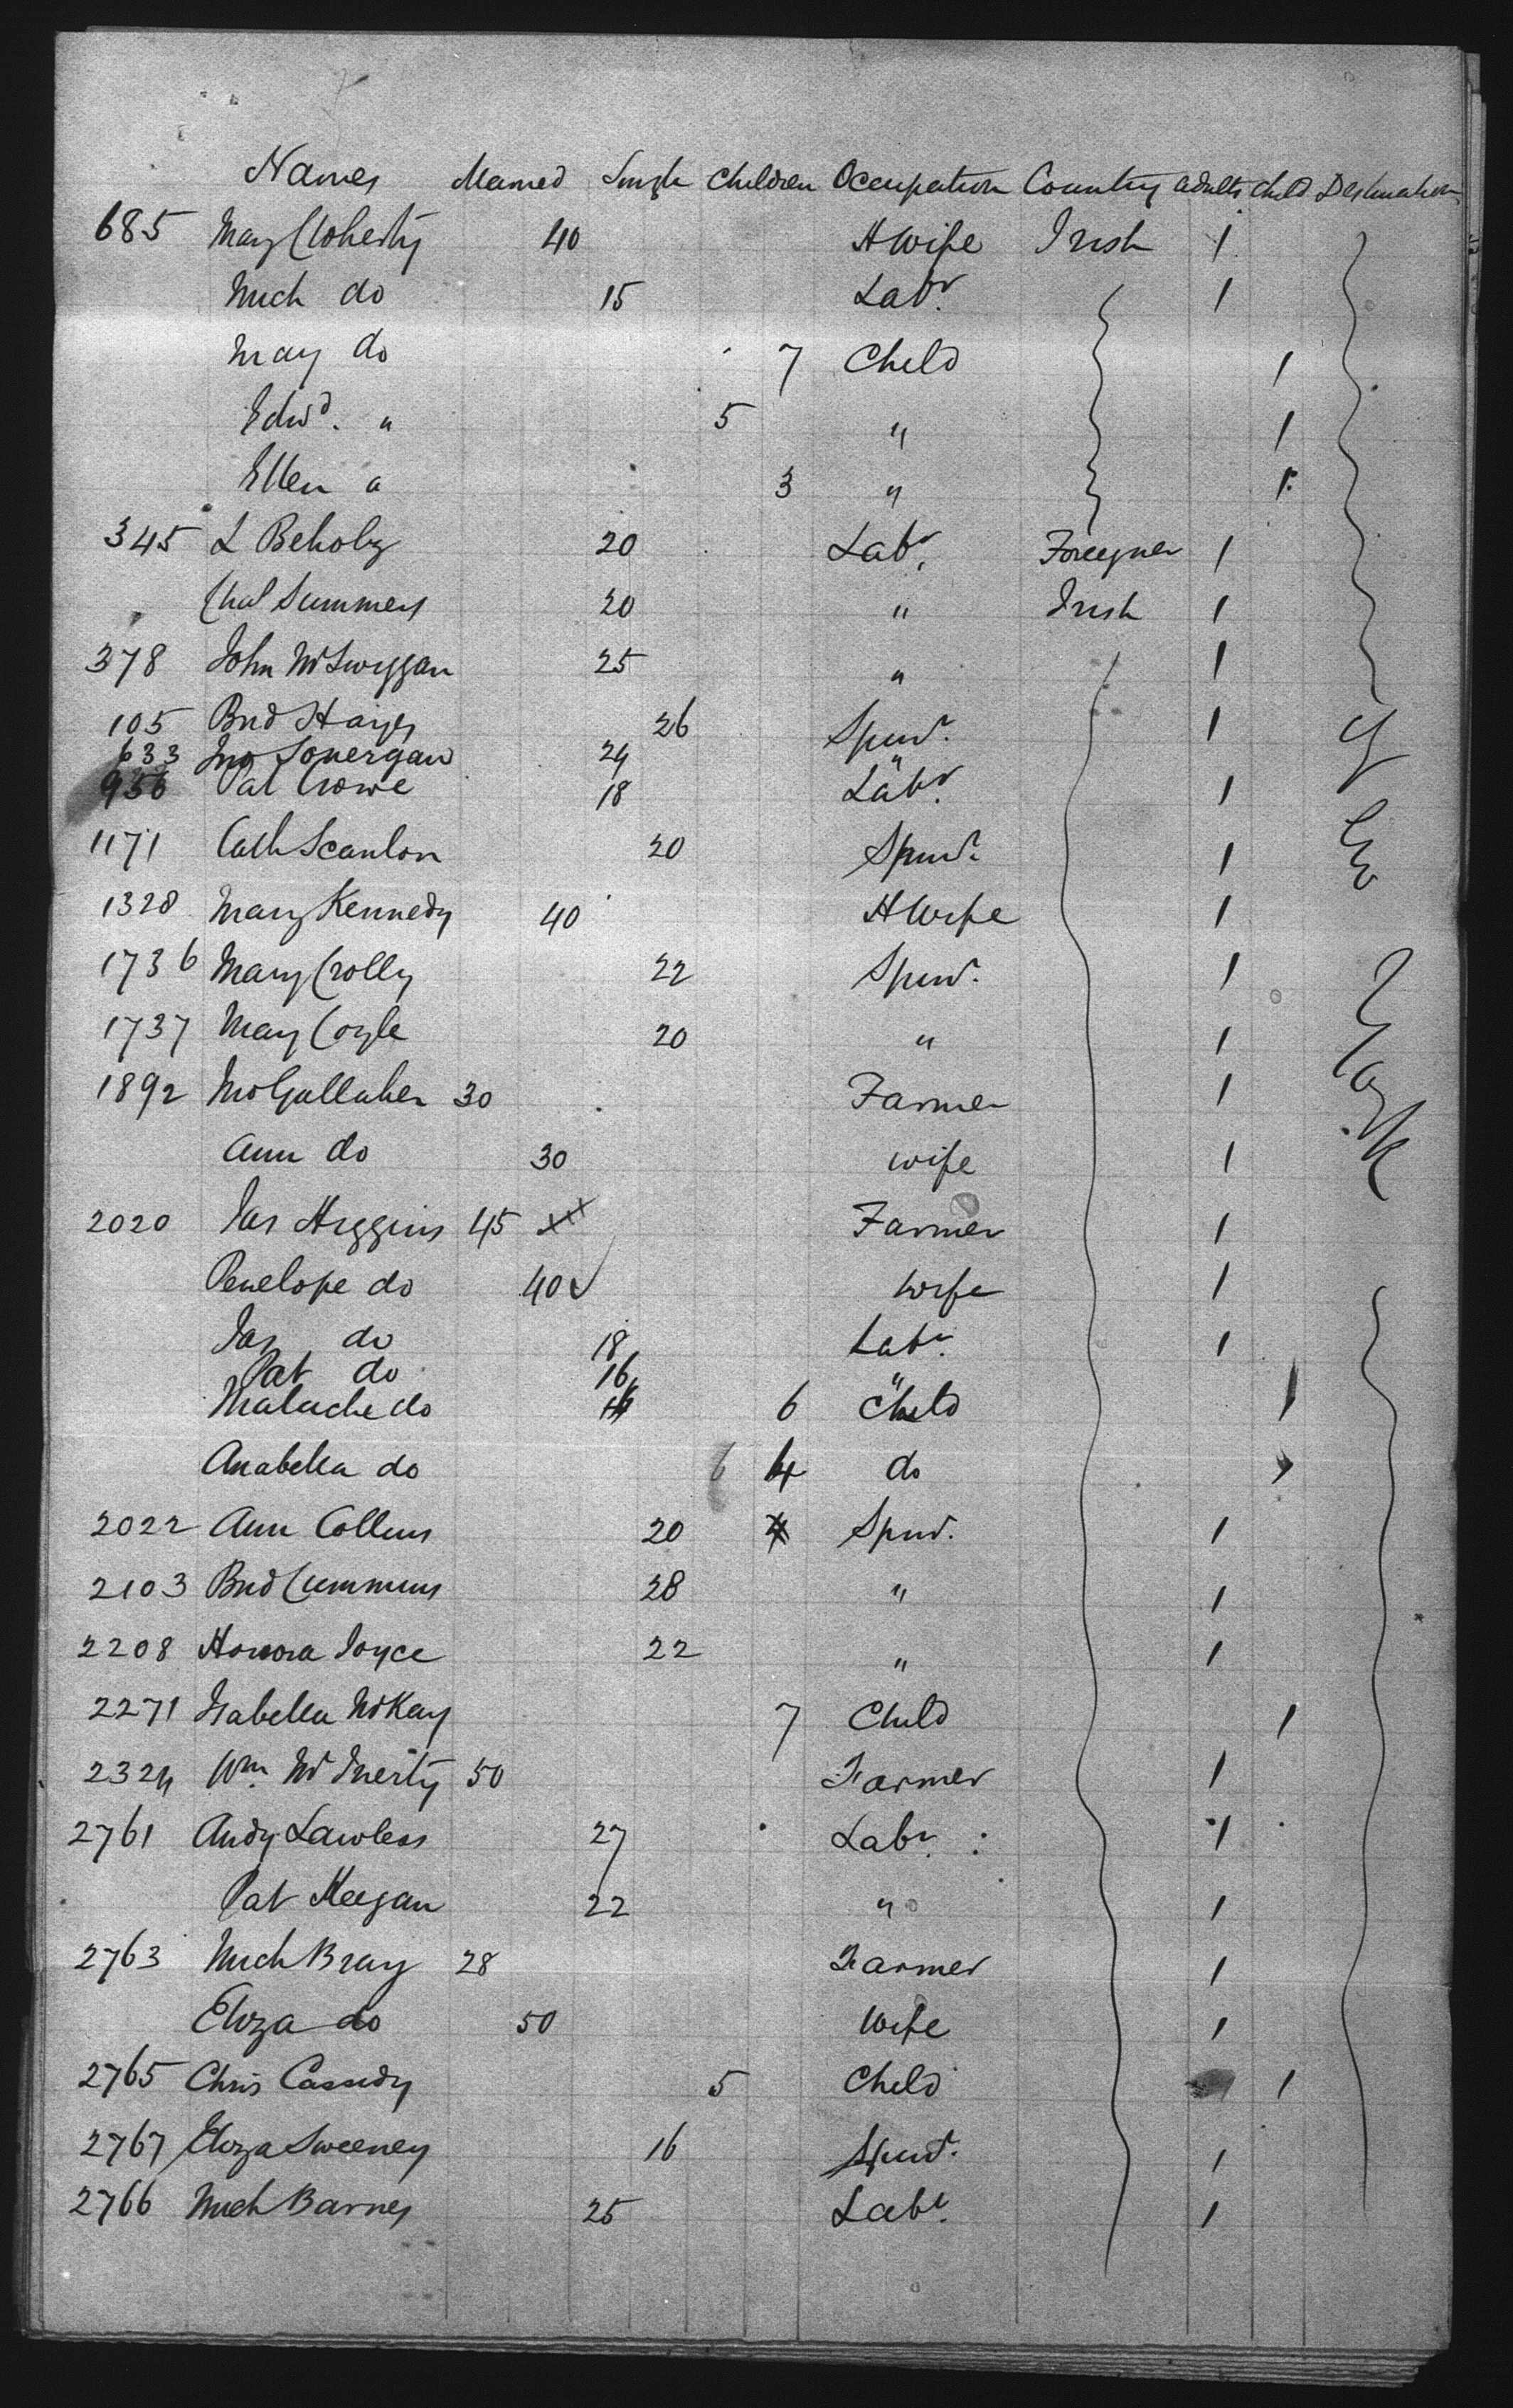 Names Married Single Children Occupation Country adults child Destination
685 Mary Cloherty 40 HWife Irish 1
Mich do 15 Labr. 1
Mary do 7 Child 1
Edwd. " 5 " 1
Ellen " 3 " 1
345 L Beholz 20 Labr. Foreigner 1
Chas Summers 20 " Irish 1
378 John McSwiggan 25 " 1
105 Brid Hayes 26 Spinr. 1
633 Jno Lonergan 24 "
956 Pat Crowe 18 Labr. 1
1171 Cath Scanlon 20 Spinr. 1
1328 Mary Kennedy 40 HWife 1
1736 Mary Crolly 22 Spinr. 1
1737 Mary Coyle 20 " 1
1892 Gallaher 30 Farmer 1
Ann do 30 wife 1
2020 Jas Higgins 45 Farmer 1
Penelope do 40 wife 1
Jas do 18 Labr. 1
Pat do 16 "
Malache do 6 Child 1
Anabella do 6 4 do
2022 Ann Collins 20 4 Spinr. 1
2103 Brid Cummins 28 " 1
2208 Honora Joyce 22 " 1
2271 Isabella McKay 7 Child 1
2324 Wm. McInerty 50 Farmer 1
2761 Andy Lawless 27 Labr. 1
Pat Keegan 22 " 1
2763 Mich Bray 28 Farmer 1
Eliza do 50 Wife 1
2765 Chris Cassidy 5 Child 1
2767 Eliza Sweeney 16 Spinr. 1
2766 Mich Barnes 25 Labr. 1